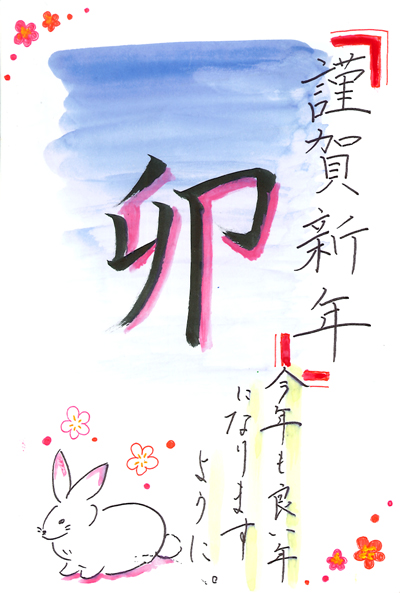 謹賀新年
卯
今年も良い年
になります
ように。